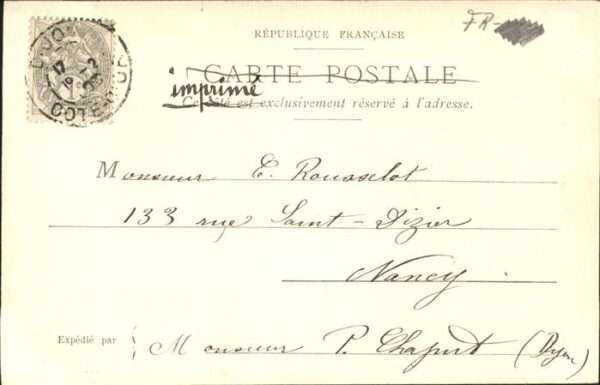 FR-
RÉPUBLIQUE FRANÇAISE
CARTE POSTALE
imprimé
Ce côté est exclusivement réservé à l'adresse.
DIJON
COTE-D'OR
Monsieur E. Rousselot
133 rue Saint-Dizier
Nancy
Expédié par Monsieur P. Chaput